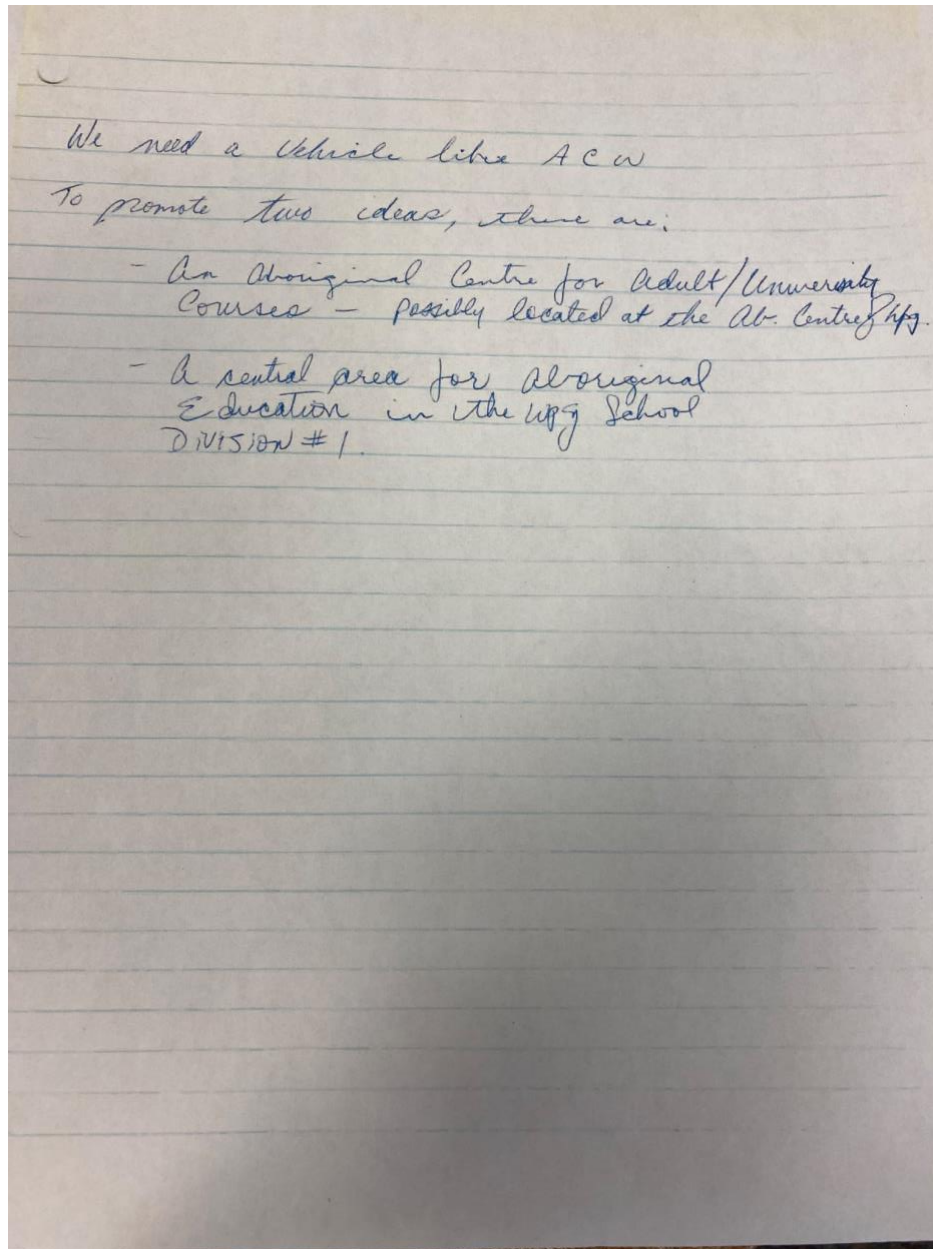 We need a Vehicle like ACW
To promote two ideas, there are:
- An Aboriginal Centre for Adult/University
Courses - possibly located at the Ab. Centre of Wpg.
- A central area for Aboriginal
Education in the Wpg School
DIVISION #1.